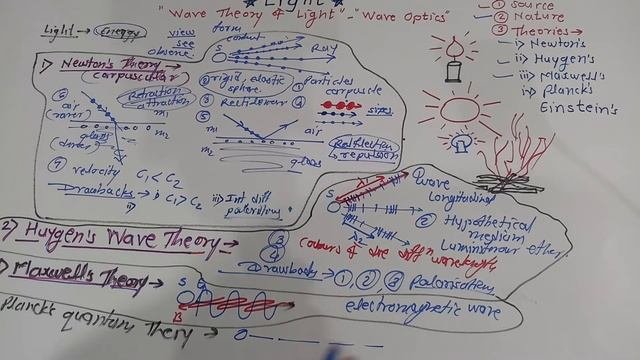 Light
"Wave Theory of Light" - "Wave Optics"
① Source
② Nature
③ Theories →
i) Newton's
ii) Huygen's
iii) Maxwell's
iv) Planck's
Einstein's
Light → Energy
view
see
observe
form
S
Ray
1) Newton's Theory →
(corpuscular)
① Particles
corpuscle
② rigid, elastic
sphere.
③ Rectilinear
④
sizes
⑤ m1
m2
air
glass
Reflection
→ repulsion
⑥
air
(rarer)
glass
(denser)
m1
m2
Refraction
attraction
⑦ velocity C1 < C2
Drawbacks → i) C1 > C2
ii)
iii) Int diff
polarisation
2) Huygen's Wave Theory →
S
λ1
λ2
Wave
Longitudinal
② Hypothetical
medium
Luminiferous ether
③
④ Colours of the diffn wavelength
Drawback → ① ② ③ Polarisation
Maxwell's Theory →
S
E
B
electromagnetic wave
Planck's quantum Thery →